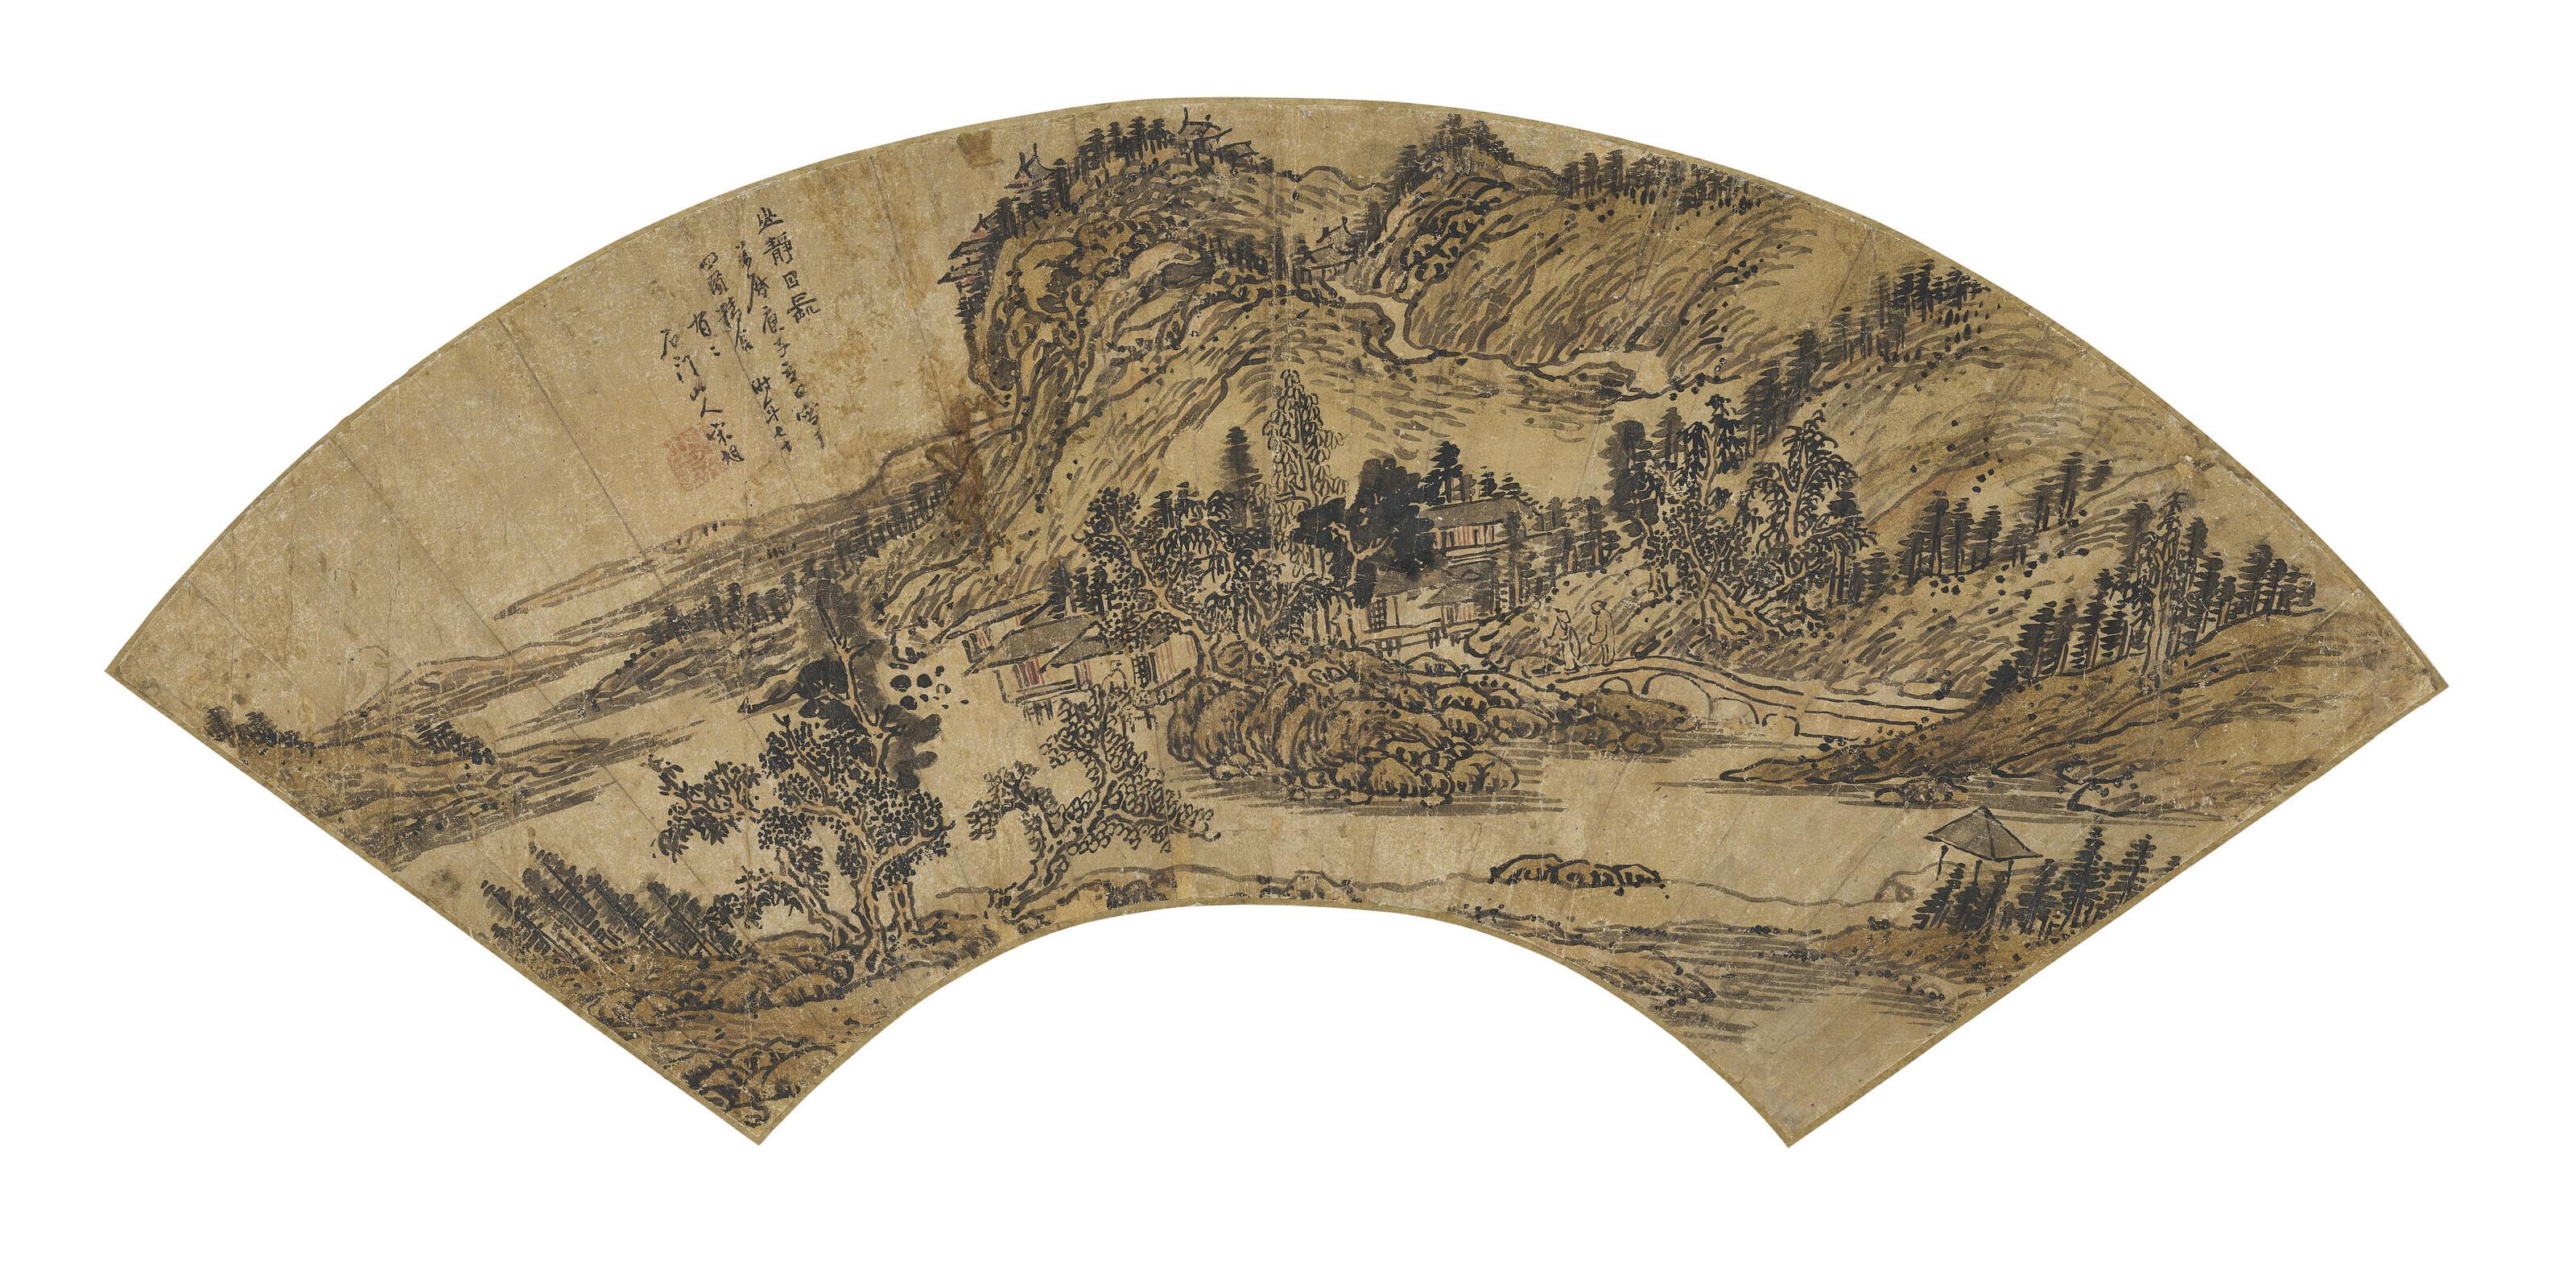 山靜日長
萬曆庚子夏日寫于
四顧精舍 時年七十
有二
石門山人宋旭